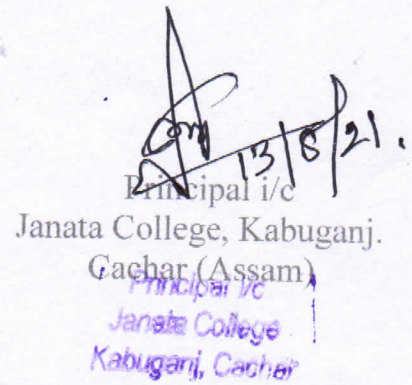 13/8/21.
Principal i/c
Janata College, Kabuganj.
Cachar (Assam)
Principal i/c
Janata College
Kabuganj, Cachar